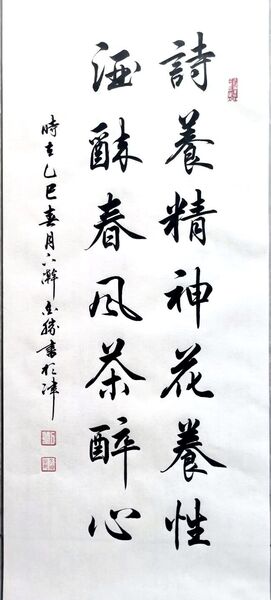 詩養精神花養性
酒酥春風茶醉心
時在乙巳春月
書於津